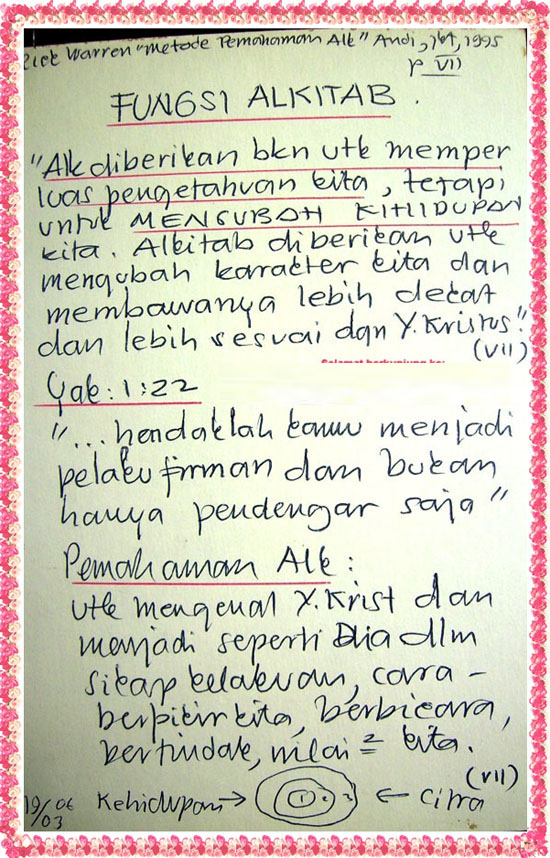 Rick Warren "Metode Pemahaman Alk" Andi, 1995
p VII
FUNGSI ALKITAB.
"Alk diberikan bkn utk memper
luas pengetahuan kita, tetapi
untuk MENGUBAH KEHIDUPAN
kita. Alkitab diberikan utk
mengubah karakter kita dan
membawanya lebih dekat
dan lebih sesuai dgn Y. Kristus."
(VII)
Selamat berkunjung ke:
Yak: 1:22
"... hendaklah kamu menjadi
pelaku firman dan bukan
hanya pendengar saja"
Pemahaman Alk:
utk mengenal Y. Krist dan
menjadi seperti Dia dlm
sikap kelakuan, cara-
berpikir kita, berbicara,
bertindak, nilai² kita.
(VII)
19/06 Kehidupan → 1 2 3 ← Citra
/03